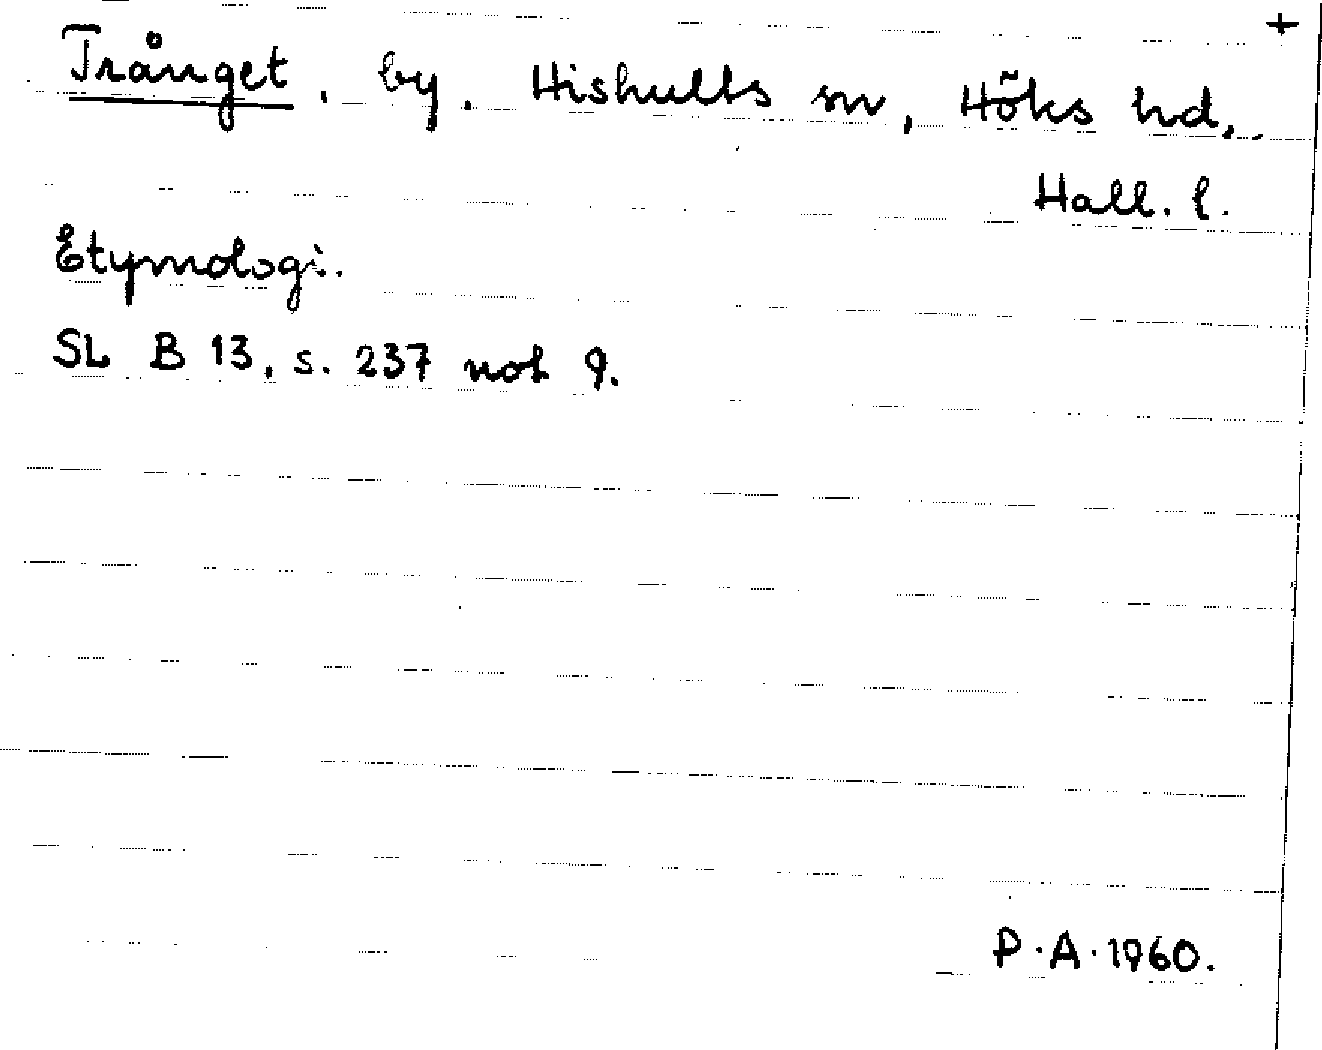 +
Trånget, by. Hishults sn, Höks hd,
Hall. l.
Etymologi.
SL B 13, s. 237 not 9.
P.A. 1960.